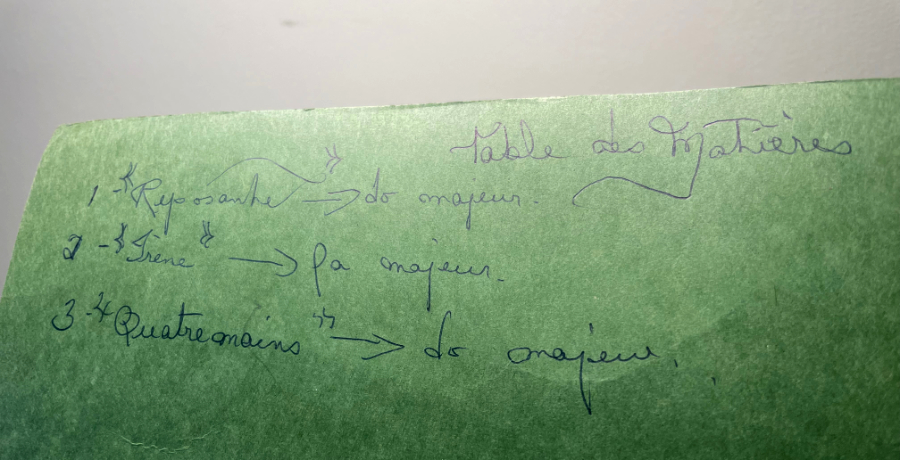 Table des Matières
1 - "Reposante" → do majeur.
2 - "Irène" → fa majeur.
3 - "Quatremains" → do majeur.